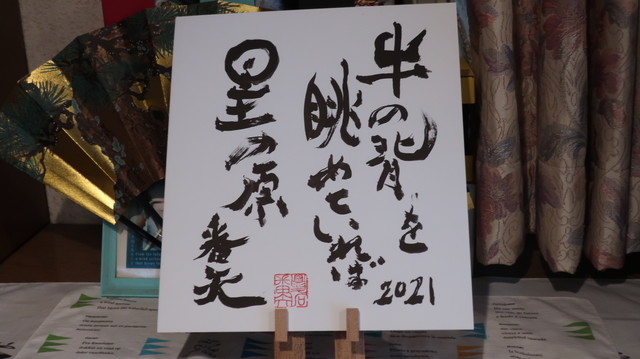 牛の背を
眺めていれば
星の原
番矢
2021